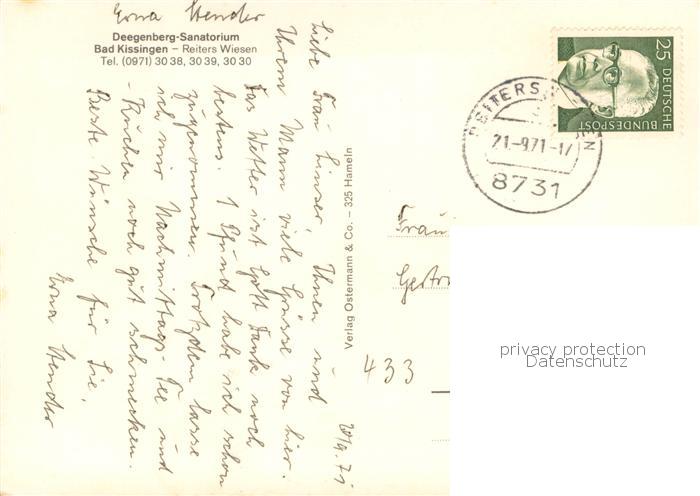 Erna Stender
Deegenberg-Sanatorium
Bad Kissingen – Reiters Wiesen
Tel. (0971) 30 38, 30 39, 30 30
Liebe Frau Linser, Ihnen und
Ihrem Mann viele Grüsse von hier.
Das Wetter ist Gott Dank noch
bestens. 1 Pfund habe ich schon
zugenommen. Trotzdem lasse
ich mir Nachmittags Tee und
-Kuchen noch gut schmecken.
Beste Wünsche für Sie,
Erna Stender
20/9.71
Verlag Ostermann & Co. – 325 Hameln
25
DEUTSCHE
BUNDESPOST
REITERS
21.-9.71-17
8731
Frau
Gertr
433
privacy protection
Datenschutz